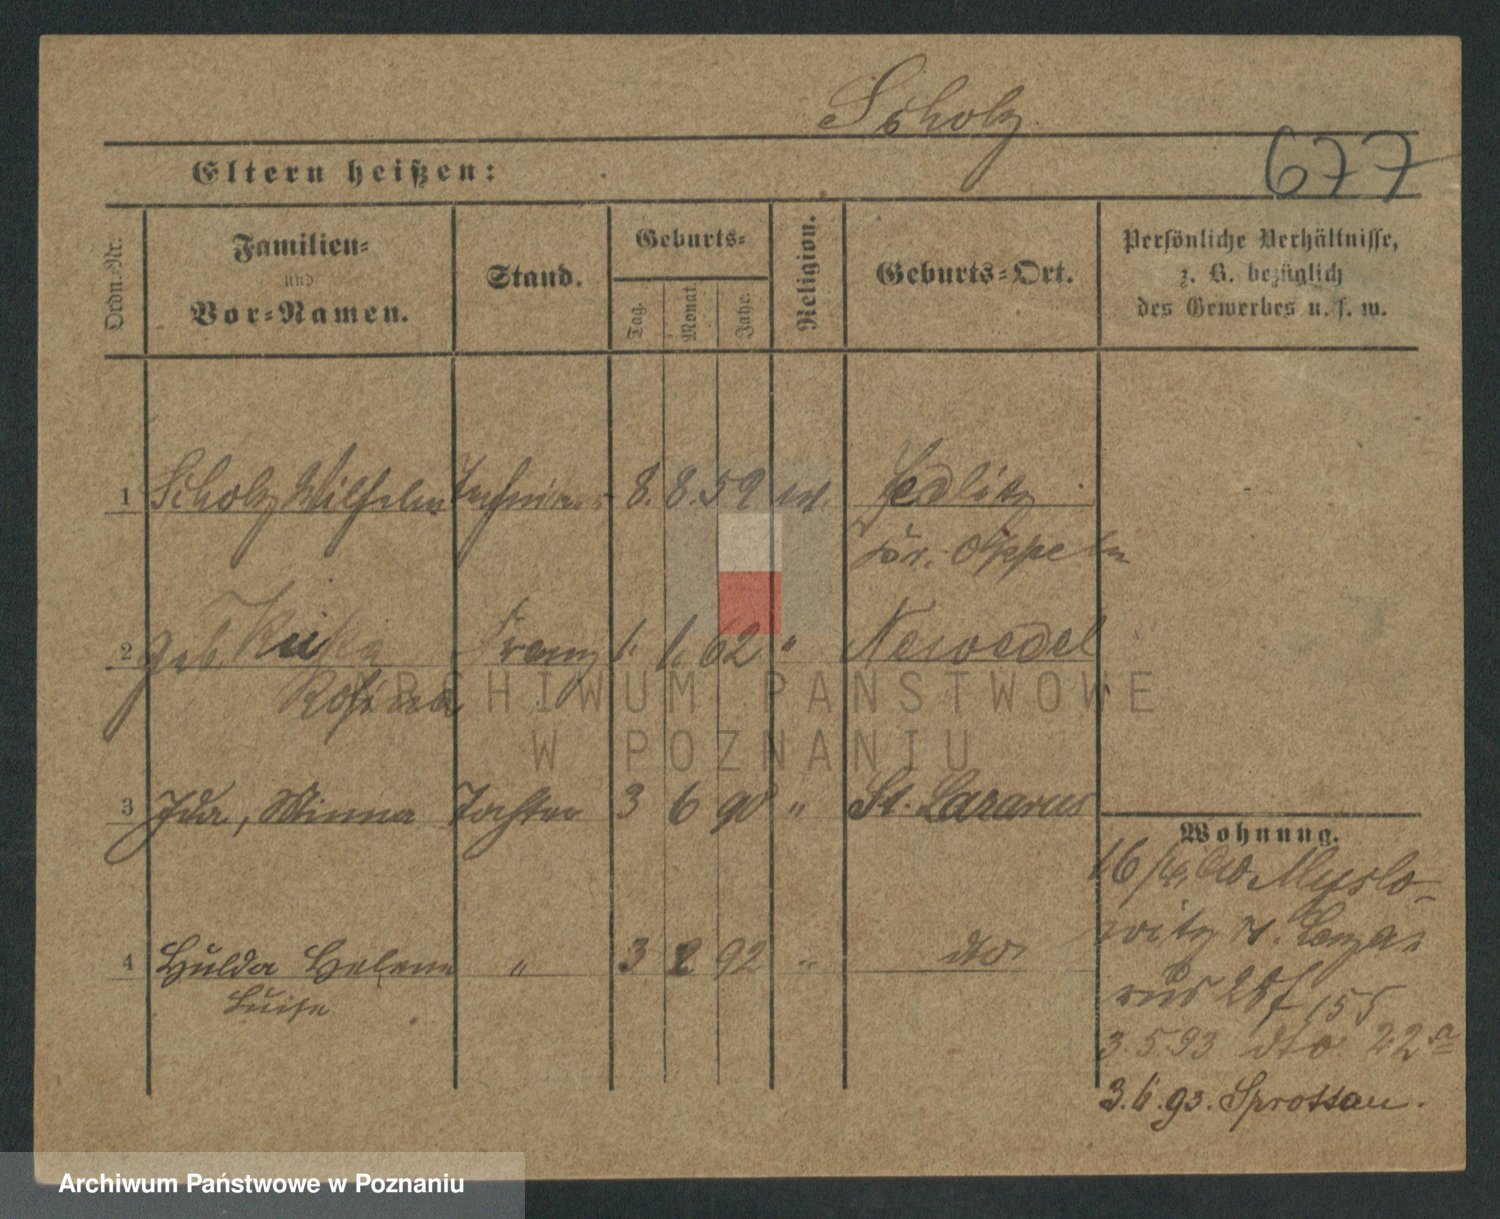 Scholz
677
Eltern heißen:
Ordn.-Nr.
Familien-
und
Vor-Namen.
Stand.
Geburts-
Tag.
Monat.
Jahr.
Religion.
Geburts-Ort.
Persönliche Verhältnisse,
z. B. bezüglich
des Gewerbes u. s. w.
1 Scholz Wilhelm 8. 8. 59
Kr. Oppeln
2 geb. Frau 1. 1. 62 " Neuwedel
Rosina
3 Ida, Minna Tochter 3 6 90 " St. Lazarus
Wohnung.
Myslo-
4 Hulda Helene " 3 2 92 " dto
Luise
witz
rus 155
3. 5. 93 dto. 22a
3. 6. 93. Sprottau.
ARCHIWUM PAŃSTWOWE
W POZNANIU
Archiwum Państwowe w Poznaniu